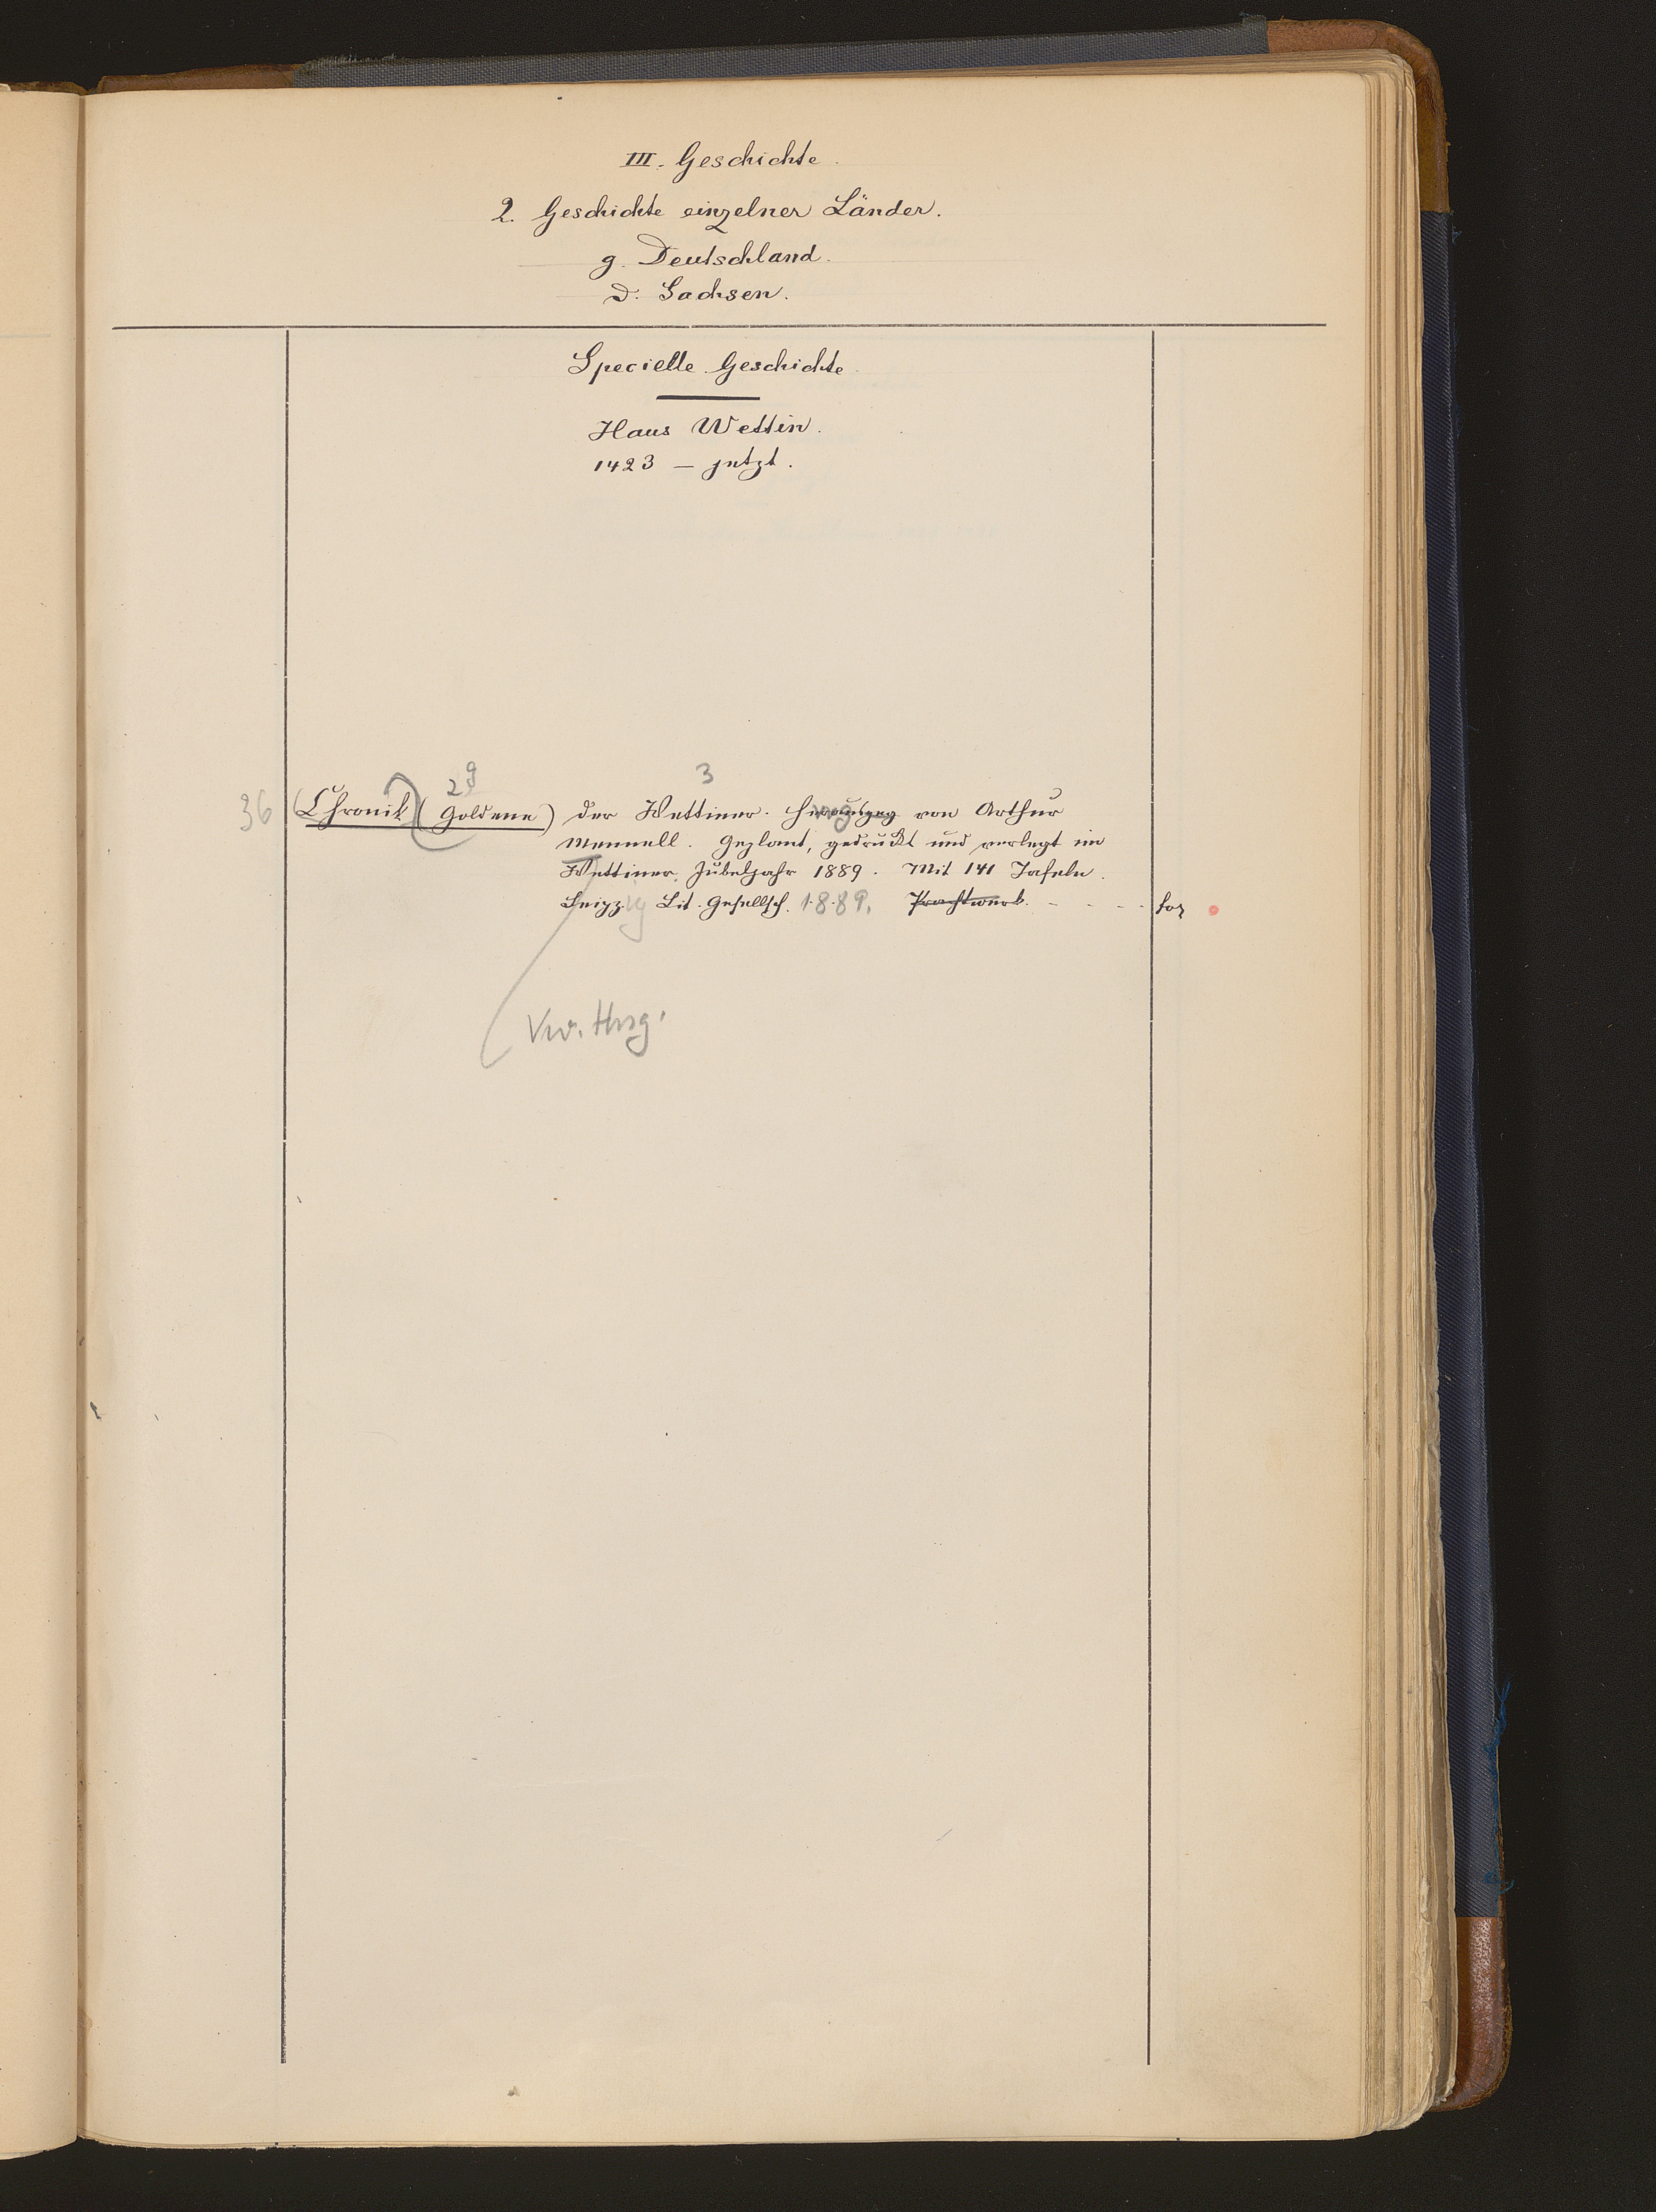 III. Geschichte.
2. Geschichte einzelner Länder.
g. Deutschland.
D. Sachsen.
Specielle Geschichte.
Haus Wettin.
1423 – jetzt.
2 g 3
36 (Chronik) (Goldene) der Wettiner. Herausgeg von Arthur
Mennell. Geplant, gedruckt und verlegt im
Wettiner Jubeljahr 1889. Mit 141 Tafeln.
Leipzig Lit. Gesellsch. 1889. Prachtwerk. - - - - fol
Vw. Hrsg.